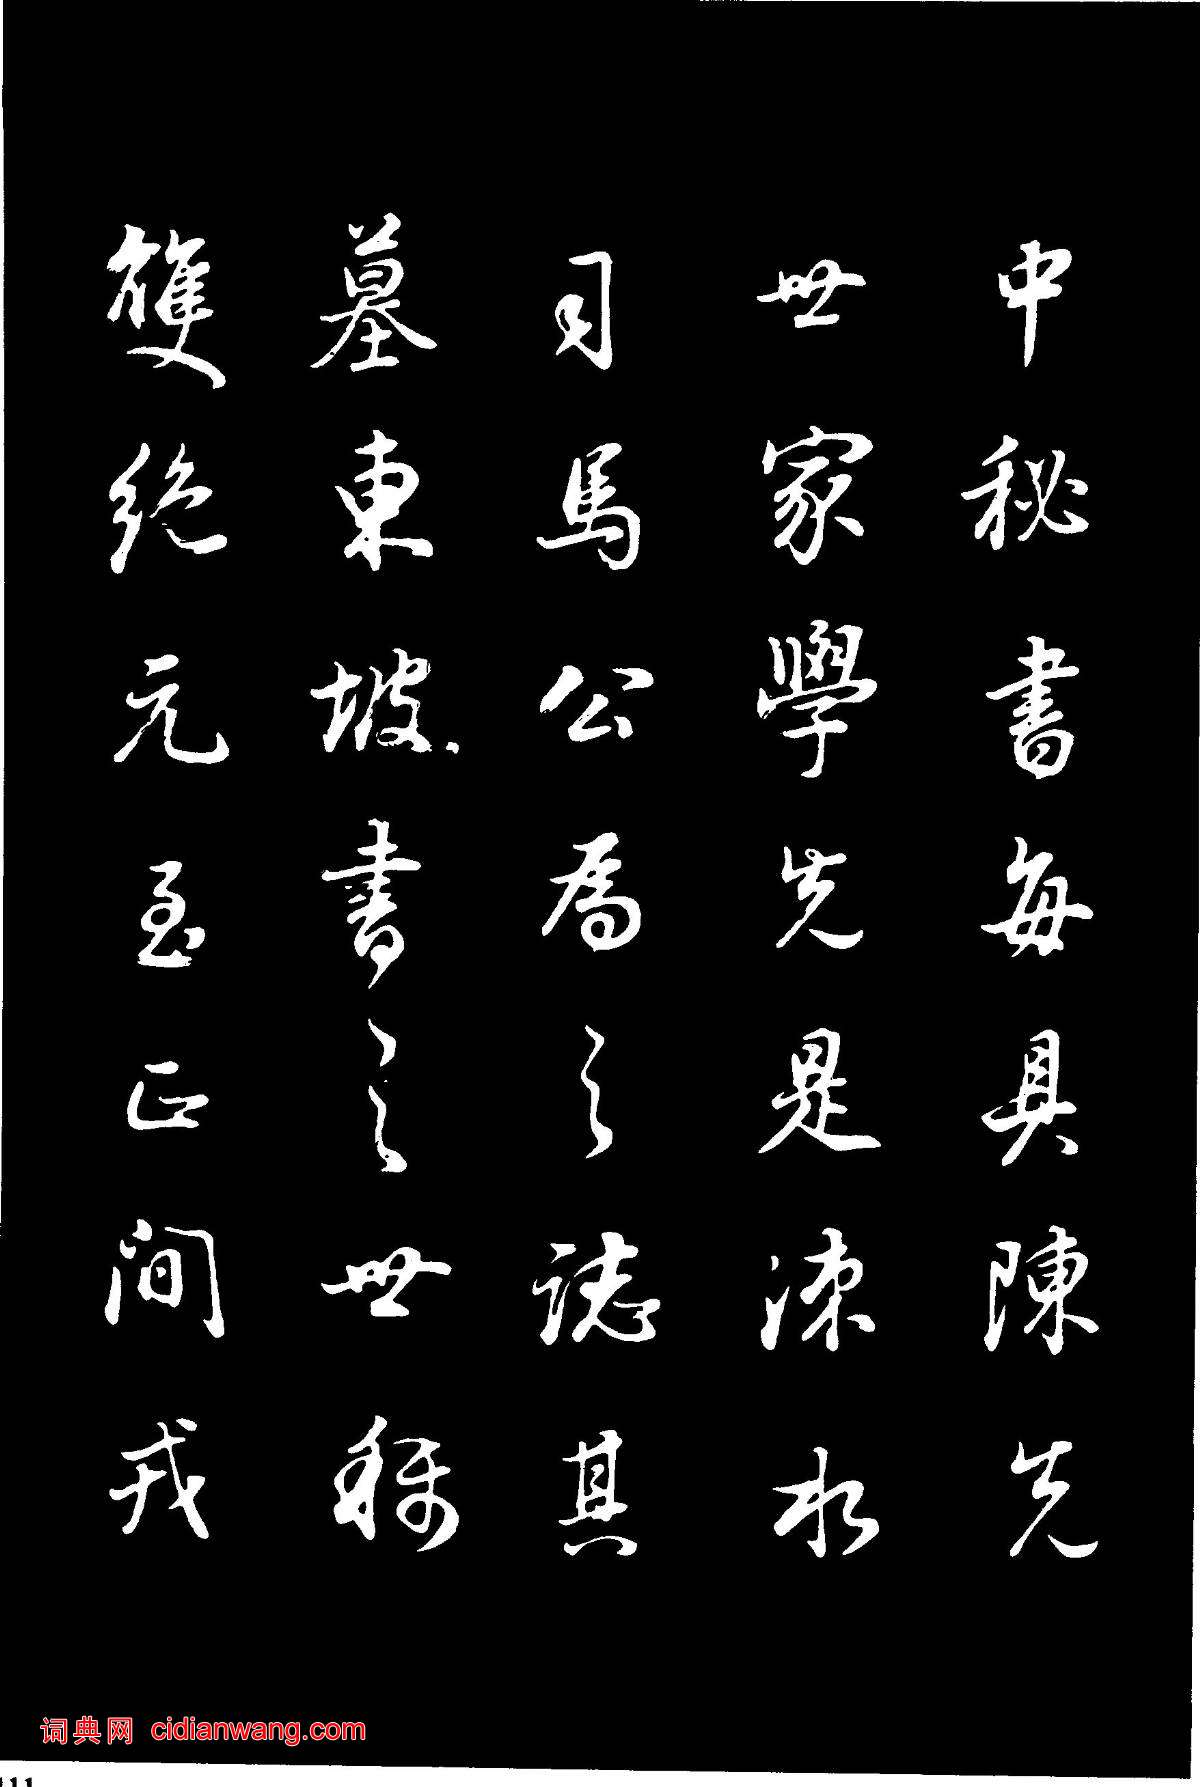 中秘書每具陳先
世家學先是涑水
司馬公為之誌其
墓東坡書之世稱
雙絕元至正間戎
词典网 cidianwang.com
111